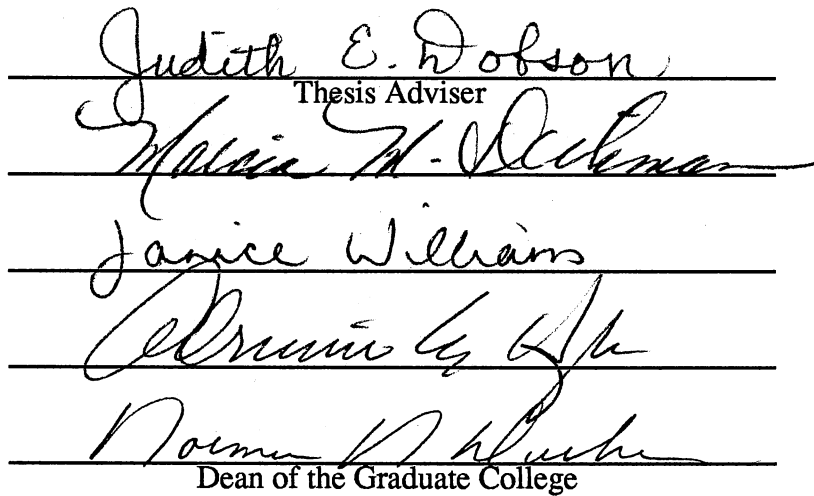 Judith E. Dobson
Thesis Adviser
Marcia M. Dickman
Janice Williams
Norman N. Durham
Dean of the Graduate College